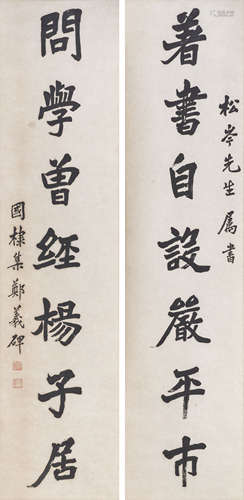 著書自設嚴平市
松岑先生屬書
問學曾經楊子居
國棣集鄭羲碑